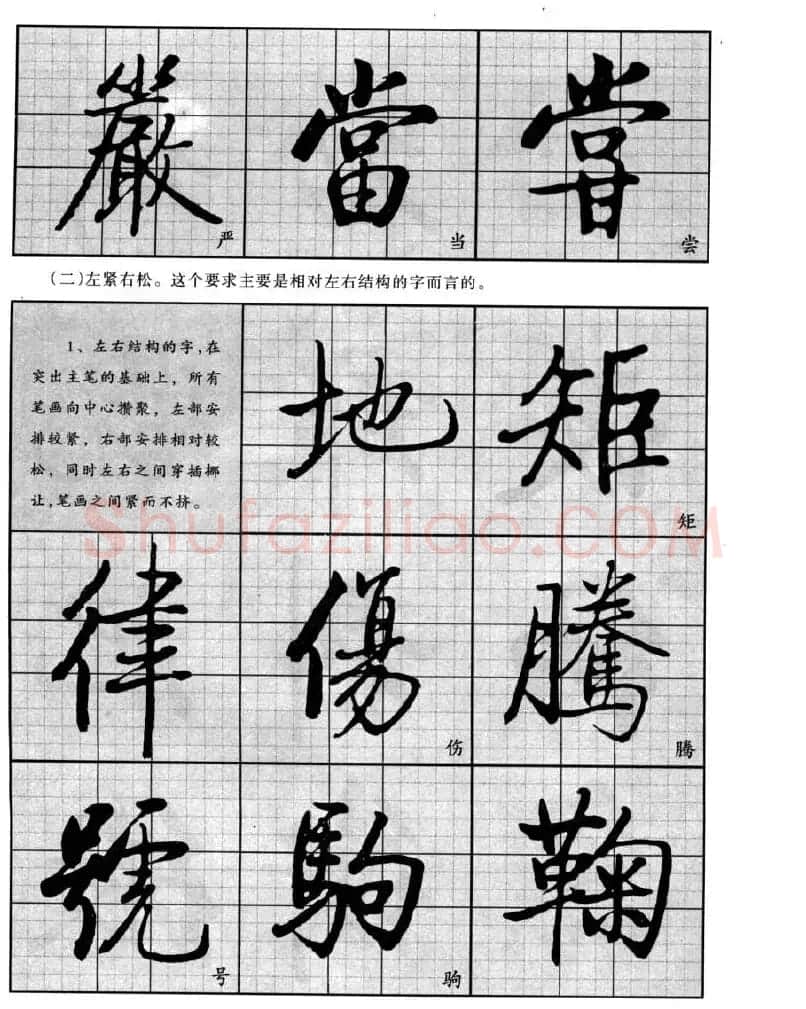 嚴 當 嘗
严 当 尝
(二)左紧右松。这个要求主要是相对左右结构的字而言的。
1、左右结构的字,在
突出主笔的基础上，所有
笔画向中心攒聚，左部安
排较紧，右部安排相对较
松，同时左右之间穿插挪
让,笔画之间紧而不挤。
地 矩
矩
律 傷 騰
伤 腾
號 駒 鞠
号 驹
shufaziliao.COM